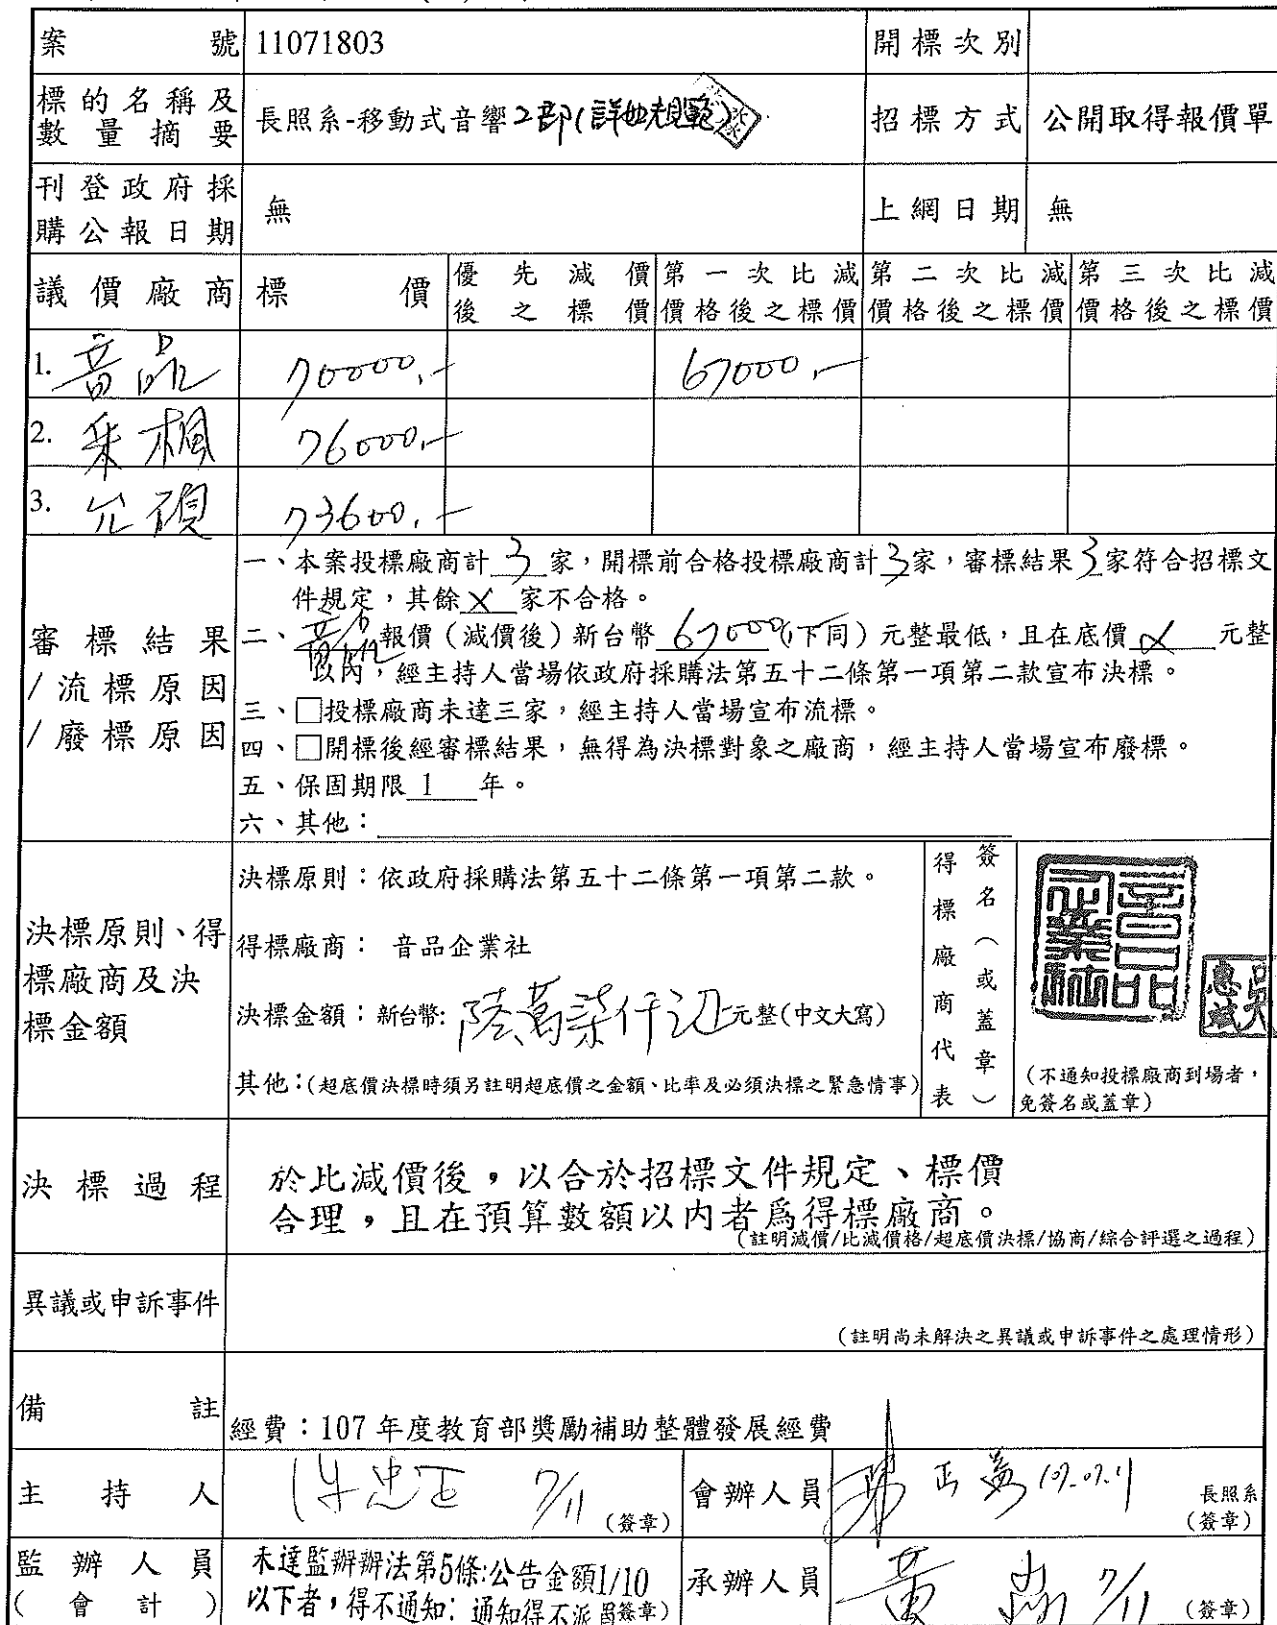 案號 11071803 開標次別
標的名稱及數量摘要 長照系-移動式音響2部(詳如規範) 招標方式 公開取得報價單
刊登政府採購公報日期 無 上網日期 無
議價廠商 標價 優先減價後之標價 第一次比減價格後之標價 第二次比減價格後之標價 第三次比減價格後之標價
1. 音品 70000.- 67000.-
2. 采楓 76000.-
3. 允碩 73600.-
審標結果/流標原因/廢標原因
一、本案投標廠商計 3 家,開標前合格投標廠商計 3 家,審標結果 3 家符合招標文
件規定,其餘 X 家不合格。
二、音品報價(減價後)新台幣 67000(下同)元整最低,且在底價 X 元整
以內,經主持人當場依政府採購法第五十二條第一項第二款宣布決標。
三、□投標廠商未達三家,經主持人當場宣布流標。
四、□開標後經審標結果,無得為決標對象之廠商,經主持人當場宣布廢標。
五、保固期限 1 年。
六、其他:
決標原則、得標廠商及決標金額
決標原則:依政府採購法第五十二條第一項第二款。
得標廠商: 音品企業社
決標金額:新台幣:陸萬柒仟元整(中文大寫)
其他:(超底價決標時須另註明超底價之金額、比率及必須決標之緊急情事)
得標廠商代表 簽名(或蓋章)
音品企業社
(不通知投標廠商到場者,
免簽名或蓋章)
決標過程
於比減價後,以合於招標文件規定、標價
合理,且在預算數額以內者為得標廠商。
(註明減價/比減價格/超底價決標/協商/綜合評選之過程)
異議或申訴事件
(註明尚未解決之異議或申訴事件之處理情形)
備註
經費:107 年度教育部獎勵補助整體發展經費
主持人 7/11 (簽章) 會辦人員 107.07.11 長照系
(簽章)
監辦人員(會計)
未達監辦辦法第5條:公告金額1/10
以下者,得不通知; 通知得不派員 簽章)
承辦人員 黃 7/11 (簽章)